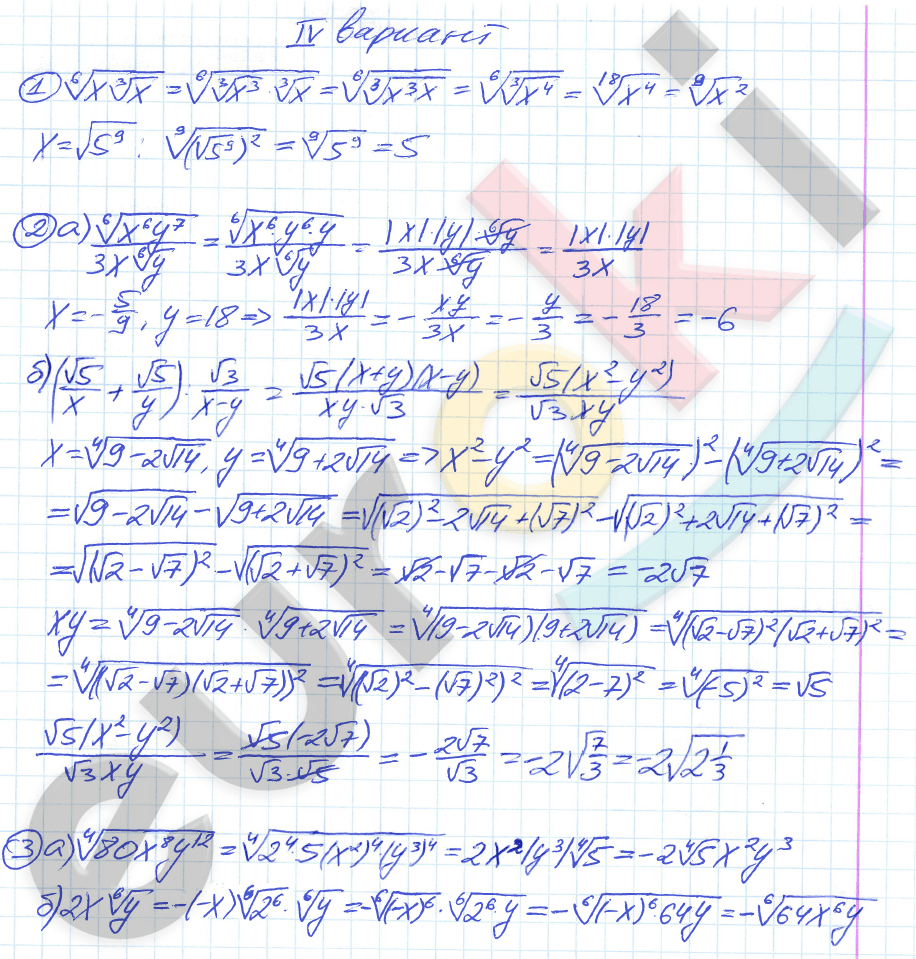 IV вариант
① ⁶√(x∛x) = ⁶√(∛x³ · ∛x) = ⁶√(∛(x³x)) = ⁶√(∛x⁴) = ¹⁸√x⁴ = ⁹√x²
x = √5⁹ : ⁹√((√5⁹)²) = ⁹√5⁹ = 5
② а) ⁶√(x⁶y⁷)/(3x ⁶√y) = ⁶√(x⁶·y⁶·y)/(3x ⁶√y) = |x|·|y|·⁶√y/(3x·⁶√y) = |x|·|y|/(3x)
x = -5/9, y = 18 => |x|·|y|/(3x) = -xy/(3x) = -y/3 = -18/3 = -6
б) (√5/x + √5/y) : √3/(x-y) = √5(x+y)(x-y)/(xy·√3) = √5(x²-y²)/(√3 xy)
x = ⁴√(9-2√14), y = ⁴√(9+2√14) => x²-y² = (⁴√(9-2√14))² - (⁴√(9+2√14))² =
= √(9-2√14) - √(9+2√14) = √((√2)²-2√14+(√7)²) - √((√2)²+2√14+(√7)²) =
= √((√2-√7)²) - √((√2+√7)²) = √2-√7-√2-√7 = -2√7
xy = ⁴√(9-2√14) · ⁴√(9+2√14) = ⁴√((9-2√14)(9+2√14)) = ⁴√((√2-√7)²(√2+√7)²) =
= ⁴√(((√2-√7)(√2+√7))²) = ⁴√(((√2)²-(√7)²)²) = ⁴√((2-7)²) = ⁴√((-5)²) = √5
√5(x²-y²)/(√3 xy) = √5(-2√7)/(√3·√5) = -2√7/√3 = -2√(7/3) = -2√(2 1/3)
③ а) ⁴√(80x⁸y¹²) = ⁴√(2⁴·5(x²)⁴(y³)⁴) = 2x²|y³|⁴√5 = -2⁴√5x²y³
б) 2x ⁶√y = -(-x)⁶√2⁶ · ⁶√y = -⁶√((-x)⁶) · ⁶√(2⁶·y) = -⁶√((-x)⁶·64y) = -⁶√(64x⁶y)
euroki